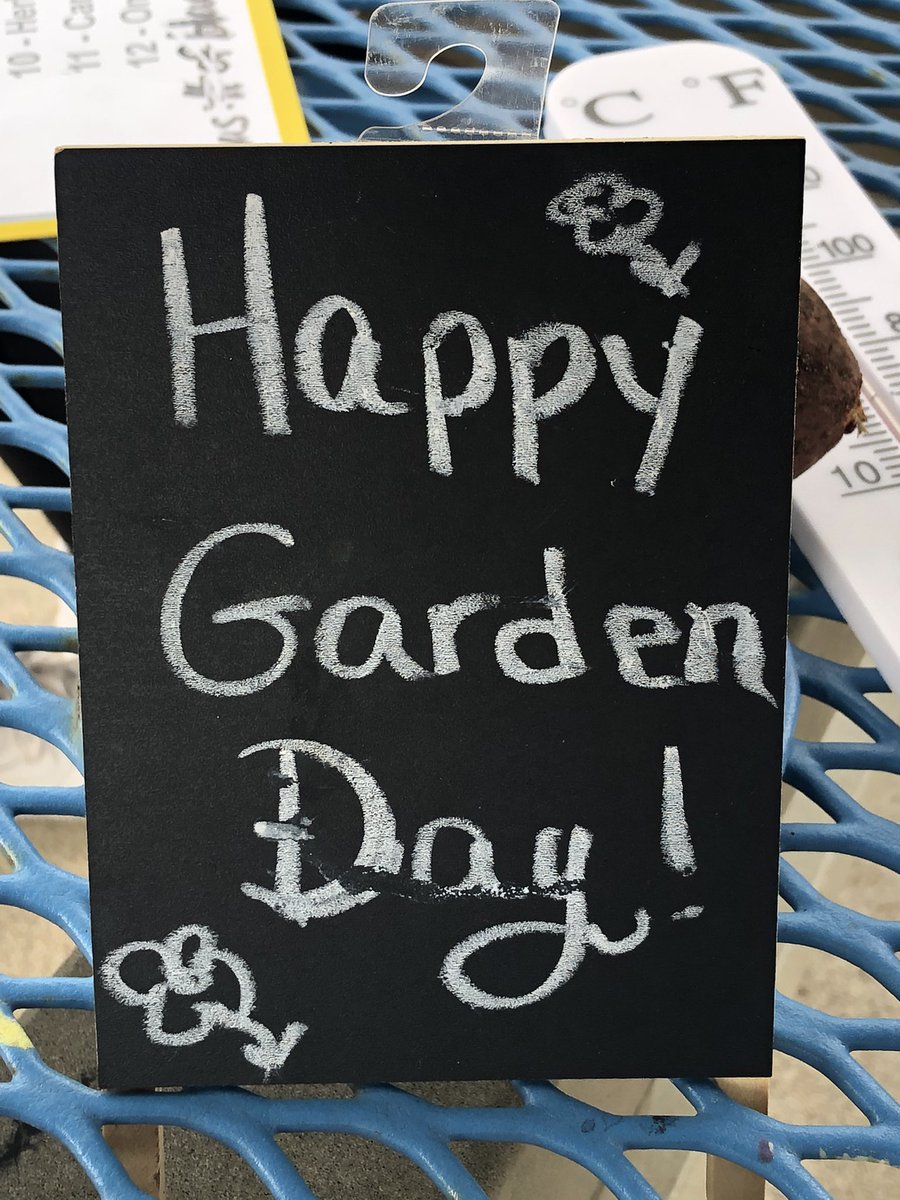 10 - Her
11 - Ca
12 - On
°C °F
100
10
Happy
Garden
Day!